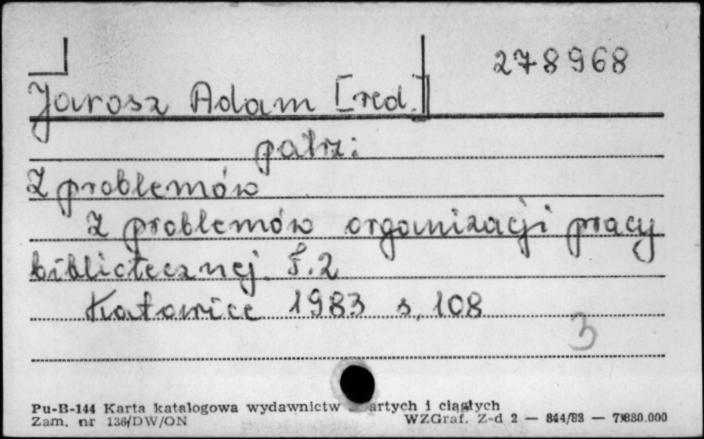 278968
Jarosz Adam [red.]
patrz:
Z problemów
Z problemów organizacji pracy
bibliotecznej
Katowice 1983 s. 108
3
Pu-B-144 Karta katalogowa wydawnictw artych i ciągłych
Zam. nr 136/DW/ON WZGraf. Z-d 2 — 844/83 —